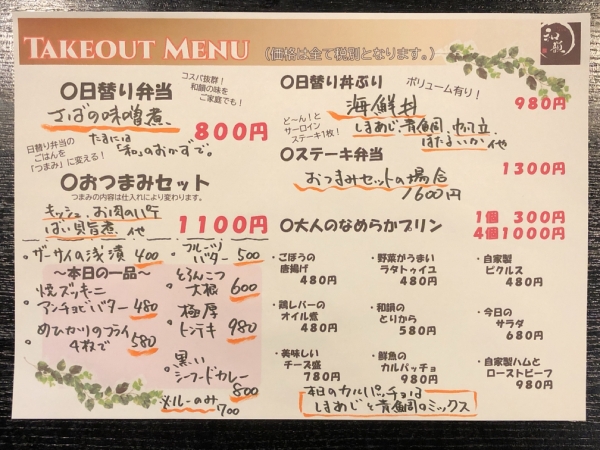 TAKEOUT MENU (価格は全て税別となります。)
和韻
〇日替り弁当
コスパ抜群！
和韻の味を
ご家庭でも！
さばの味噌煮
800円
日替り弁当の
ごはんを
「つまみ」に変える！
たまには
「和」のおかずで。
〇おつまみセット
つまみの内容は仕入れにより変わります。
キッシュ、お肉のパテ
ばい貝旨煮 他
1100円
・ザーサイの浅漬 400
～本日の一品～
・焼ズッキーニ
アンチョビバター 480
・めひかりのフライ
4枚で 580
・フルーツ
バター 500
・とろんこつ
大根 600
・極厚
トンテキ 980
・黒い
シーフードカレー
800
※ルーのみ 700
〇日替り丼ぶり
ボリューム有り！
海鮮丼
980円
しまあじ、青魚、帆立、
ほたるいか 他
ど～ん！と
サーロイン
ステーキ1枚！
〇ステーキ弁当
1300円
おつまみセットの場合
1600円
〇大人のなめらかプリン
1個 300円
4個1000円
・ごぼうの
唐揚げ
480円
・野菜がうまい
ラタトゥイユ
480円
・自家製
ピクルス
480円
・鶏レバーの
オイル煮
480円
・和韻の
とりから
580円
・今日の
サラダ
680円
・美味しい
チーズ盛
780円
・鮮魚の
カルパッチョ
980円
・自家製ハムと
ローストビーフ
980円
本日のカルパッチョは
しまあじと青魚のミックス